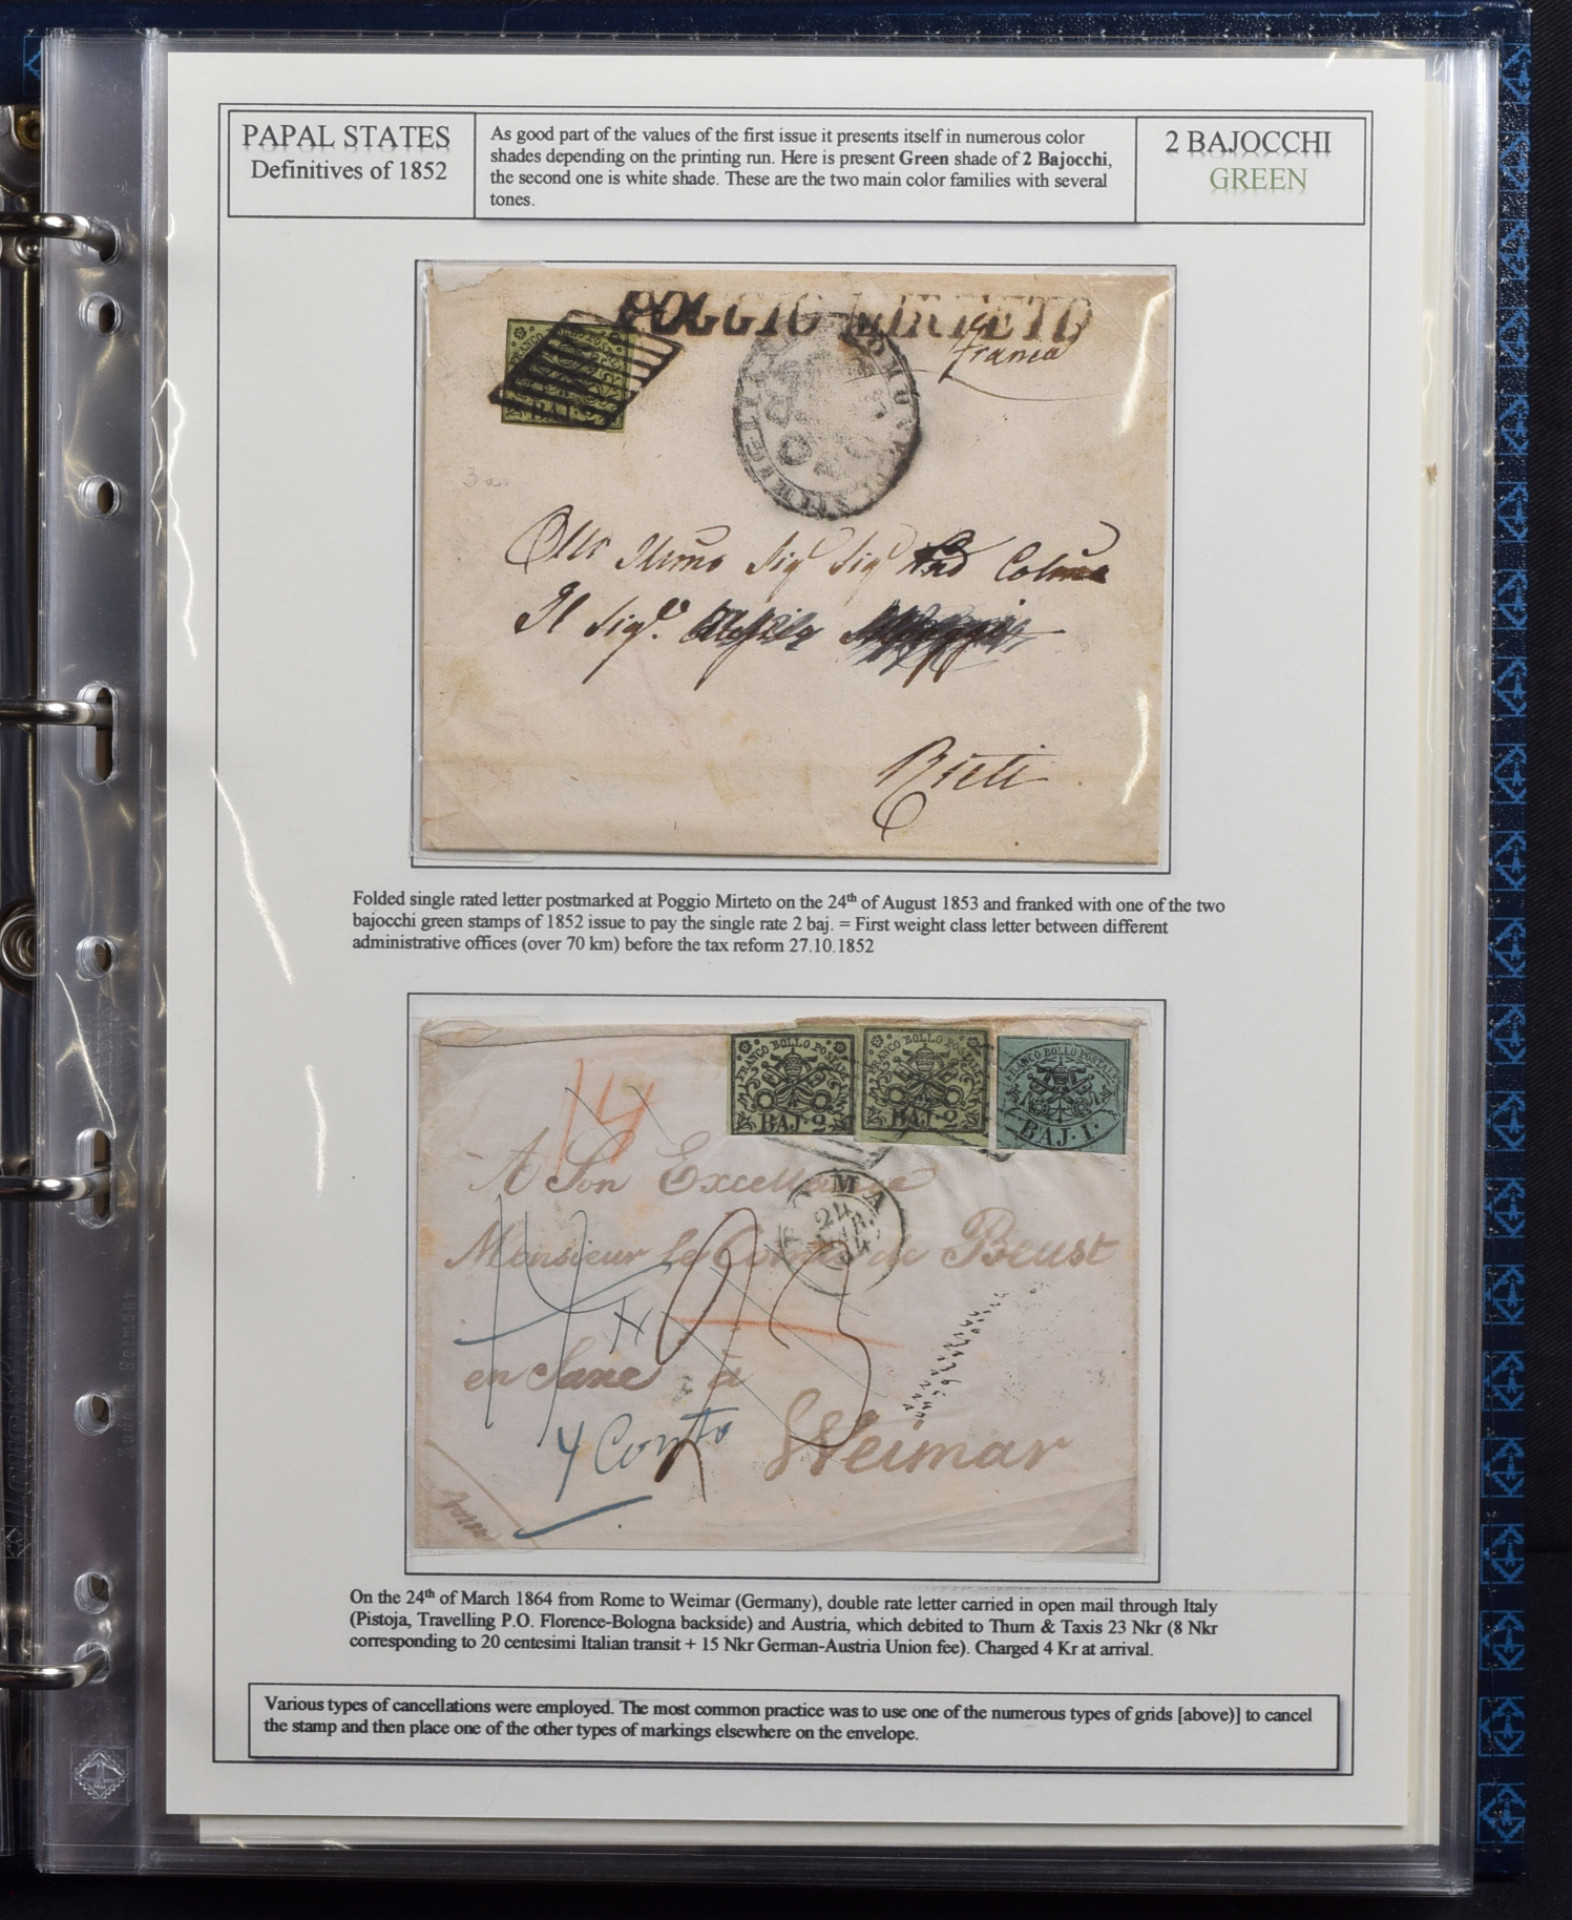 PAPAL STATES
Definitives of 1852
As good part of the values of the first issue it presents itself in numerous color
shades depending on the printing run. Here is present Green shade of 2 Bajocchi,
the second one is white shade. These are the two main color families with several
tones.
2 BAJOCCHI
GREEN
POGGIO MIRTETO
franca
BAJ.
Il Sigr.
Rieti
Folded single rated letter postmarked at Poggio Mirteto on the 24th of August 1853 and franked with one of the two
bajocchi green stamps of 1852 issue to pay the single rate 2 baj. = First weight class letter between different
administrative offices (over 70 km) before the tax reform 27.10.1852
FRANCO BOLLO POSTALE
BAJ. 2
FRANCO BOLLO POSTALE
BAJ. 2
FRANCO BOLLO POSTALE
BAJ. 1.
14
A Son Excellence
ROMA
24
Monsieur le Comte de Beust
en Saxe à
Weimar
On the 24th of March 1864 from Rome to Weimar (Germany), double rate letter carried in open mail through Italy
(Pistoja, Travelling P.O. Florence-Bologna backside) and Austria, which debited to Thurn & Taxis 23 Nkr (8 Nkr
corresponding to 20 centesimi Italian transit + 15 Nkr German-Austria Union fee). Charged 4 Kr at arrival.
Various types of cancellations were employed. The most common practice was to use one of the numerous types of grids [above)] to cancel
the stamp and then place one of the other types of markings elsewhere on the envelope.